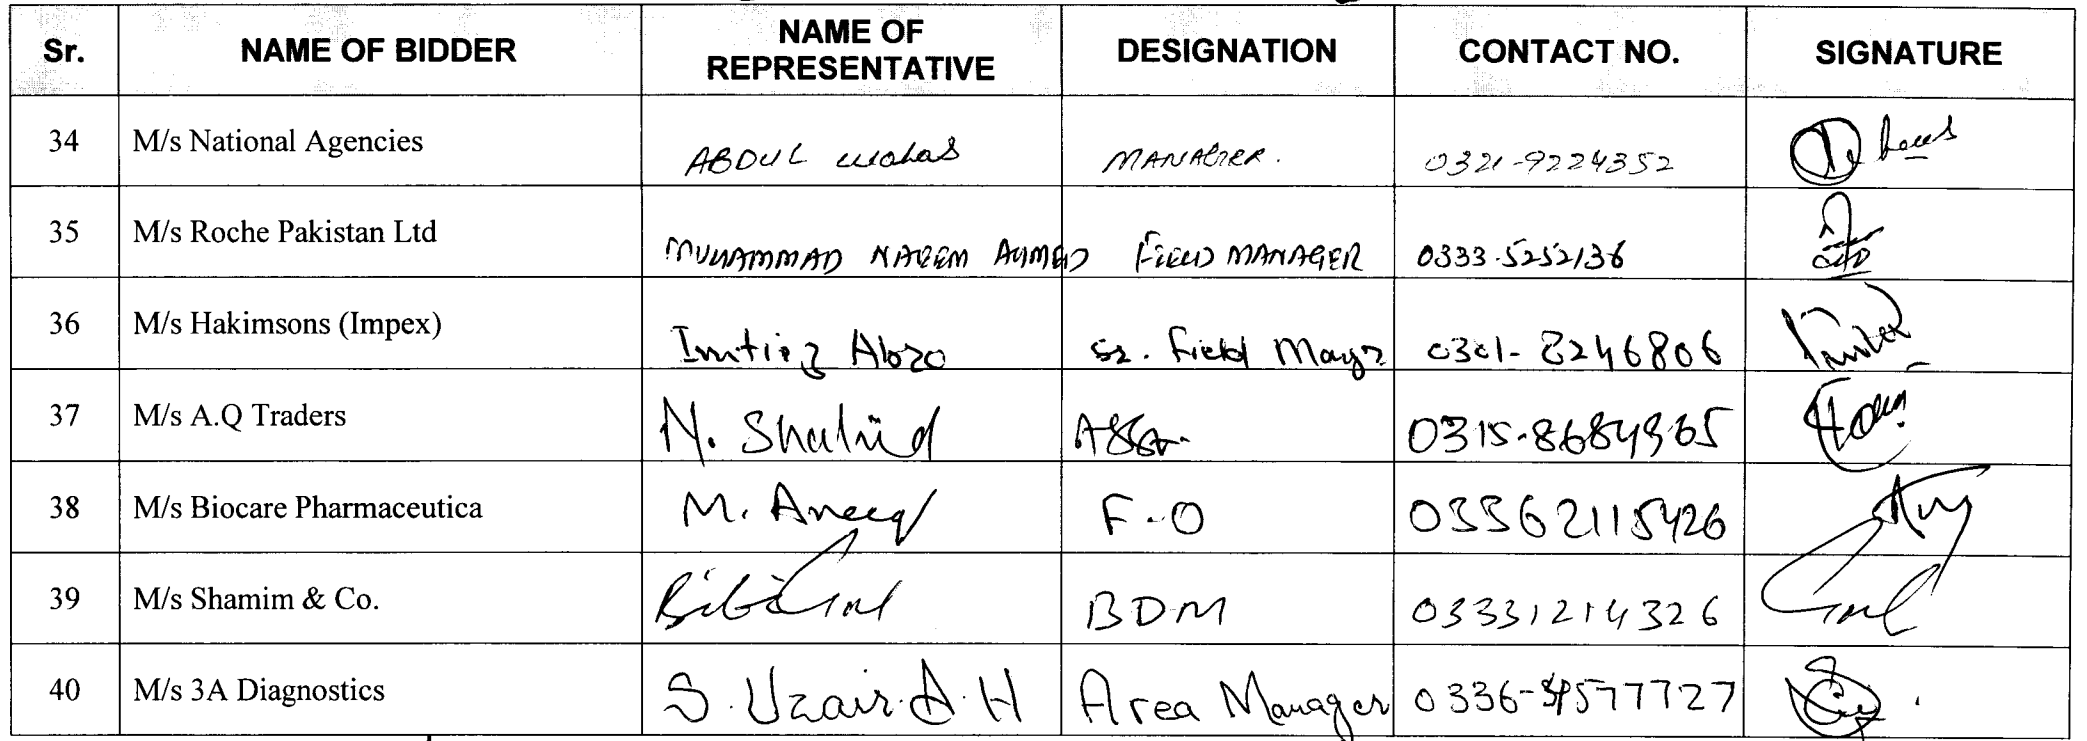 Sr. NAME OF BIDDER NAME OF REPRESENTATIVE DESIGNATION CONTACT NO. SIGNATURE
34 M/s National Agencies ABDUL Wahab MANAGER. 0321-9224352
35 M/s Roche Pakistan Ltd MUHAMMAD NAEEM AHMED FIELD MANAGER 0333-5252136
36 M/s Hakimsons (Impex) Imtiaz Abro Sr. Field Mangr 0301-8246806
37 M/s A.Q Traders N. Shahid 0315-8684965
38 M/s Biocare Pharmaceutica M. Aneeq F-O 03362115426
39 M/s Shamim & Co. BDM 03331214326
40 M/s 3A Diagnostics S. Uzair A.H Area Manager 0336-